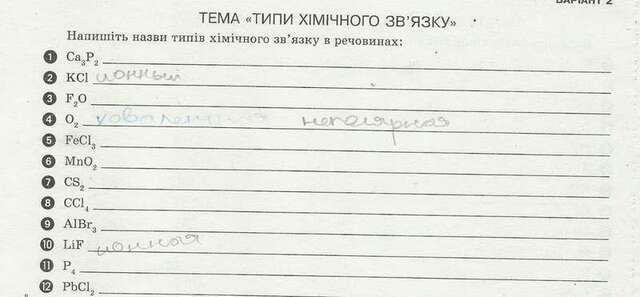 ВАРІАНТ 2
ТЕМА «ТИПИ ХІМІЧНОГО ЗВ'ЯЗКУ»
Напишіть назви типів хімічного зв'язку в речовинах:
1 Ca₃P₂
2 KCl ионный
3 F₂O
4 O₂ ковалентная неполярная
5 FeCl₃
6 MnO₂
7 CS₂
8 CCl₄
9 AlBr₃
10 LiF ионная
11 P₄
12 PbCl₂